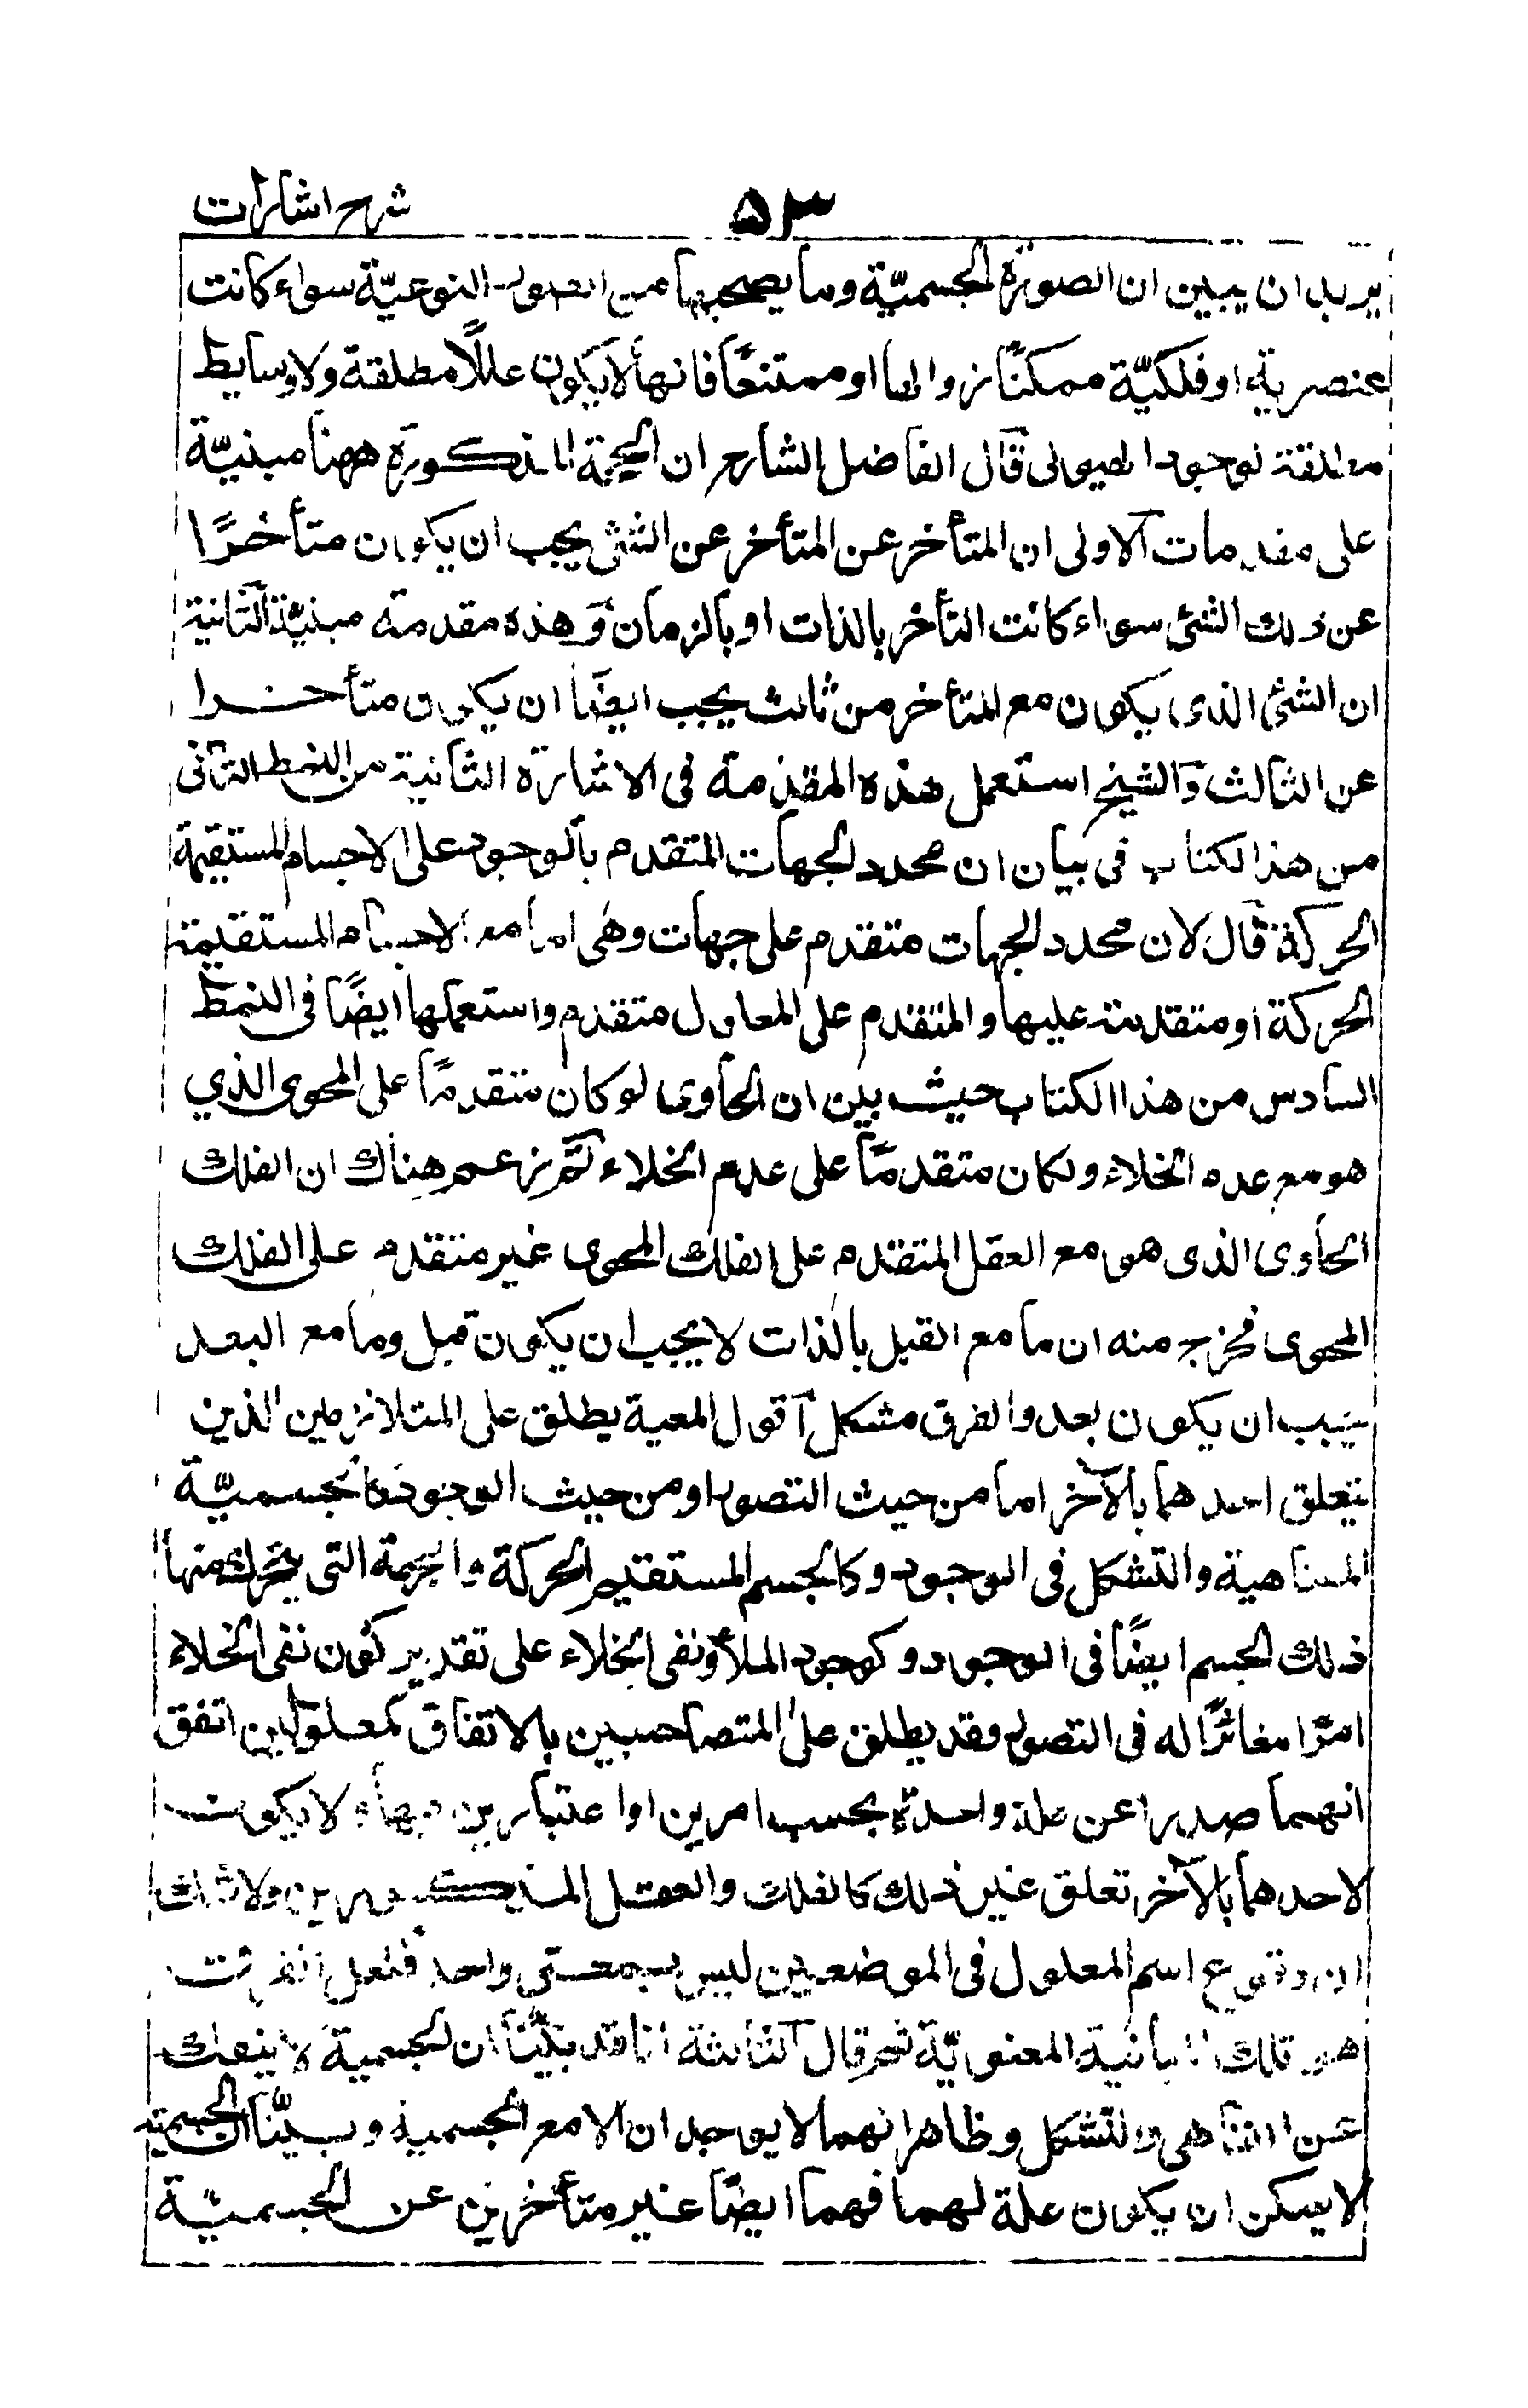 شرح اشارات
۵۳
يريد ان يبين ان الصورة الجسميّة وما يصحبها من الصور النوعيّة سواء كانت
عنصرية او فلكيّة ممكنًا زوالها او ممتنعًا فانها لا يكون عللًا مطلقة ولا وسايط
مطلقة لوجود الهيولى قال الفاضل الشارح ان الحجة المذكورة ههنا مبنيّة
على مقدمات الاولى ان المتأخر عن المتأخر عن الشئ يجب ان يكون متأخرًا
عن ذلك الشئ سواء كانت التأخر بالذات او بالزمان وهذه مقدمة مبنيّة الثانية
ان الشئ الذى يكون مع المتأخر من ثالث يجب ايضًا ان يكون متأخرا
عن الثالث والشيخ استعمل هذه المقدمة فى الاشارة الثانية من النمط الثانى
من هذا لكتاب فى بيان ان محدد الجهات المتقدم بالوجود على الاجسام المستقيمة
الحركة قال لان محدد الجهات متقدم على جهات وهى اما مع الاجسام المستقيمة
الحركة او متقدمة عليها والمتقدم على المعاول متقدم واستعملها ايضًا فى النمط
السادس من هذا الكتاب حيث بين ان الحاوى لو كان متقدمًا على المحوى الذي
هو مع عدم الخلاء ولكان متقدمًا على عدم الخلاء ثم زعم هناك ان الفلك
الحاوى الذى هو مع العقل المتقدم على الفلك المحوى غير متقدم على الفلك
المحوى فخرج منه ان ما مع القبل بالذات لا يجب ان يكون قبل وما مع البعد
يجب ان يكون بعد والفرق مشكل اقول المعية يطلق على المتلازمين الذين
يتعلق احدهما بالآخر اما من حيث التصور او من حيث الوجود كالجسميّة
المتناهية والتشكل فى الوجود وكالجسم المستقيم الحركة والجهة التى يتحرك منها
ذلك الجسم ايضًا فى الوجود وكوجود الملأ ونفى الخلاء على تقدير كون نفى الخلاء
امرًا مغائرًا له فى التصور وقد يطلق على المتصاحبين بالاتفاق كمعلولين اتفق
انهما صدرا عن علة واحدة بحسب امرين او اعتبارين فيها ولا يكون
لاحدهما بالآخر تعلق غير ذلك كالفلك والعقل المذكورين ولا شك
ان وقوع اسم المعلول فى الموضعين ليس بمعنى واحد فلعل الفرق
هو تلك المباينة المعنويّة ثم قال الثالثة انا قد بيّنا ان الجسمية لا ينفك
عن التناهى والتشكل وظاهر انهما لا يوجد ان الا مع الجسمية وبيّنا ان الجسمية
لا يمكن ان يكون علة لهما فهما ايضًا غير متأخرين عن الجسميّة